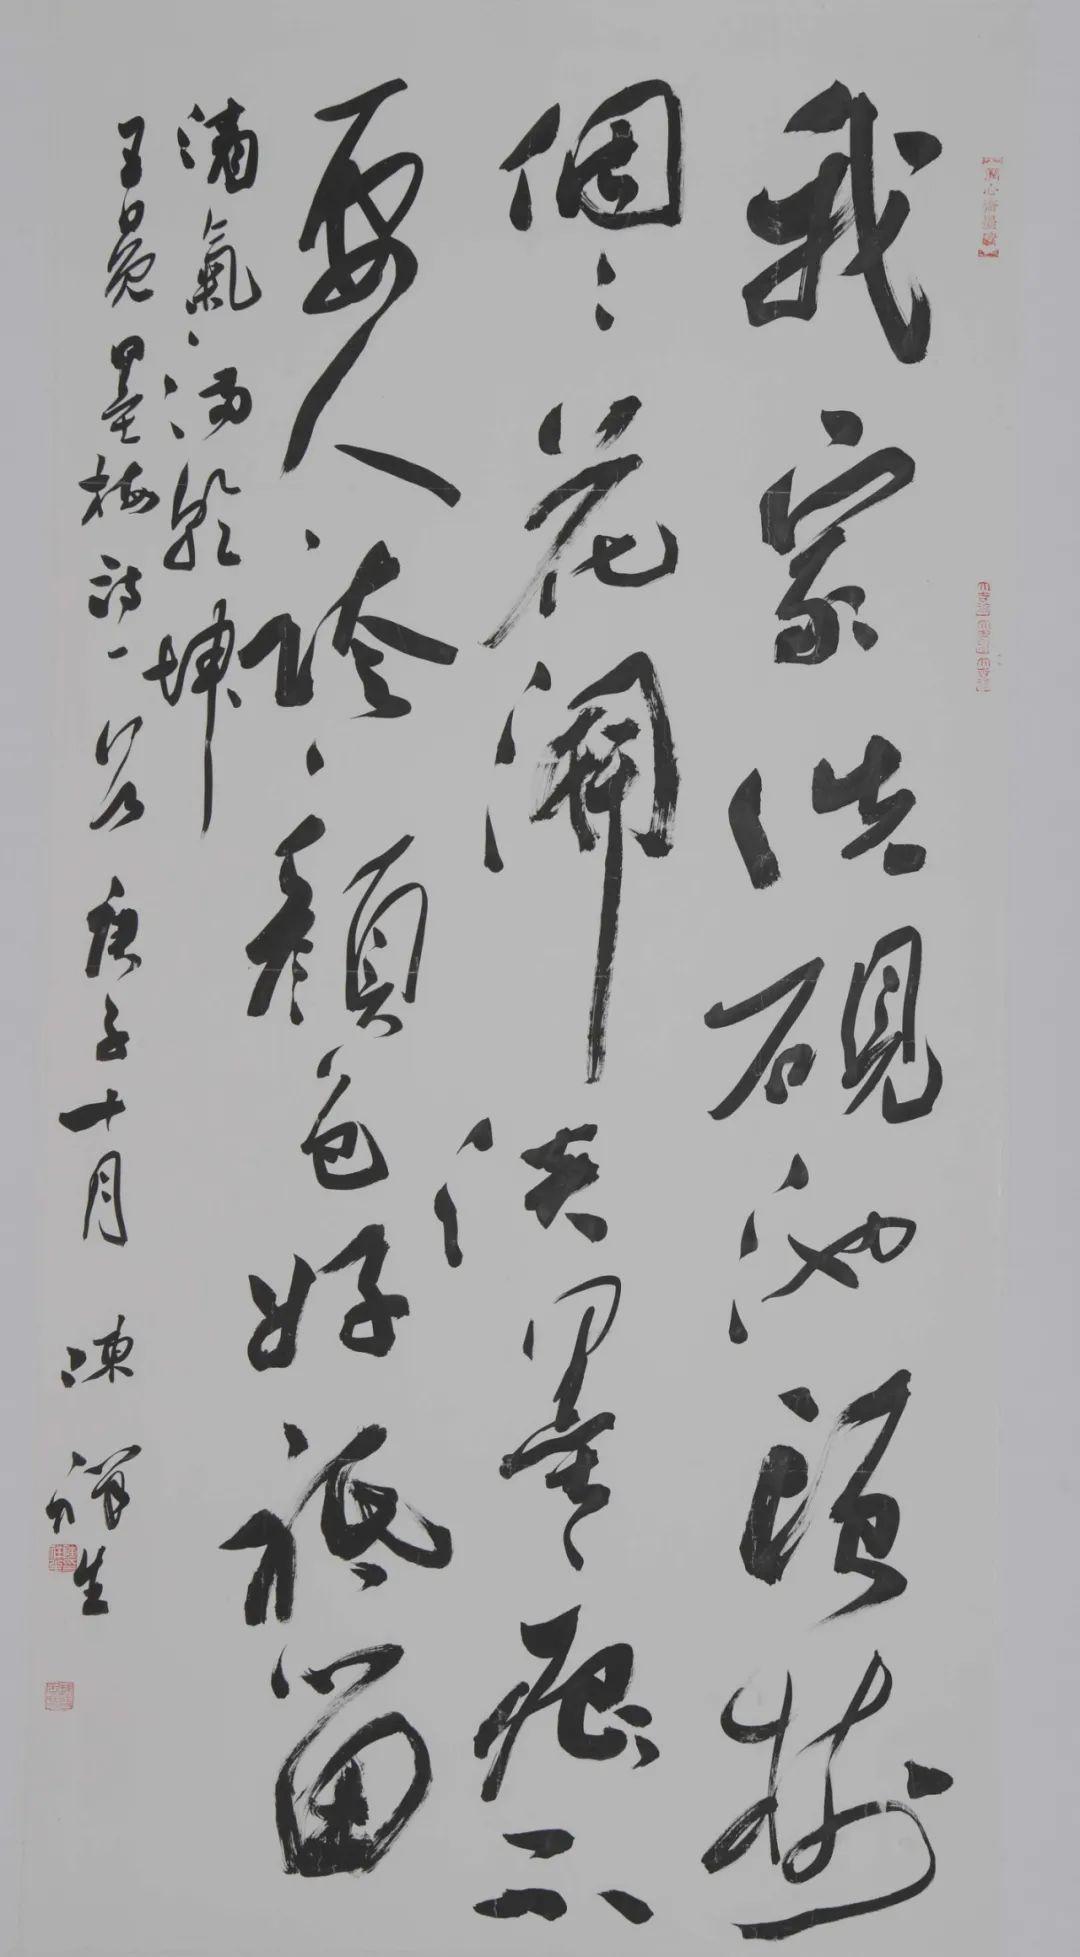 我家洗硯池頭樹
個々花開淡墨痕不
要人誇顏色好祇留
清氣滿乾坤
王冕墨梅詩一首 庚子十月 陳祥生